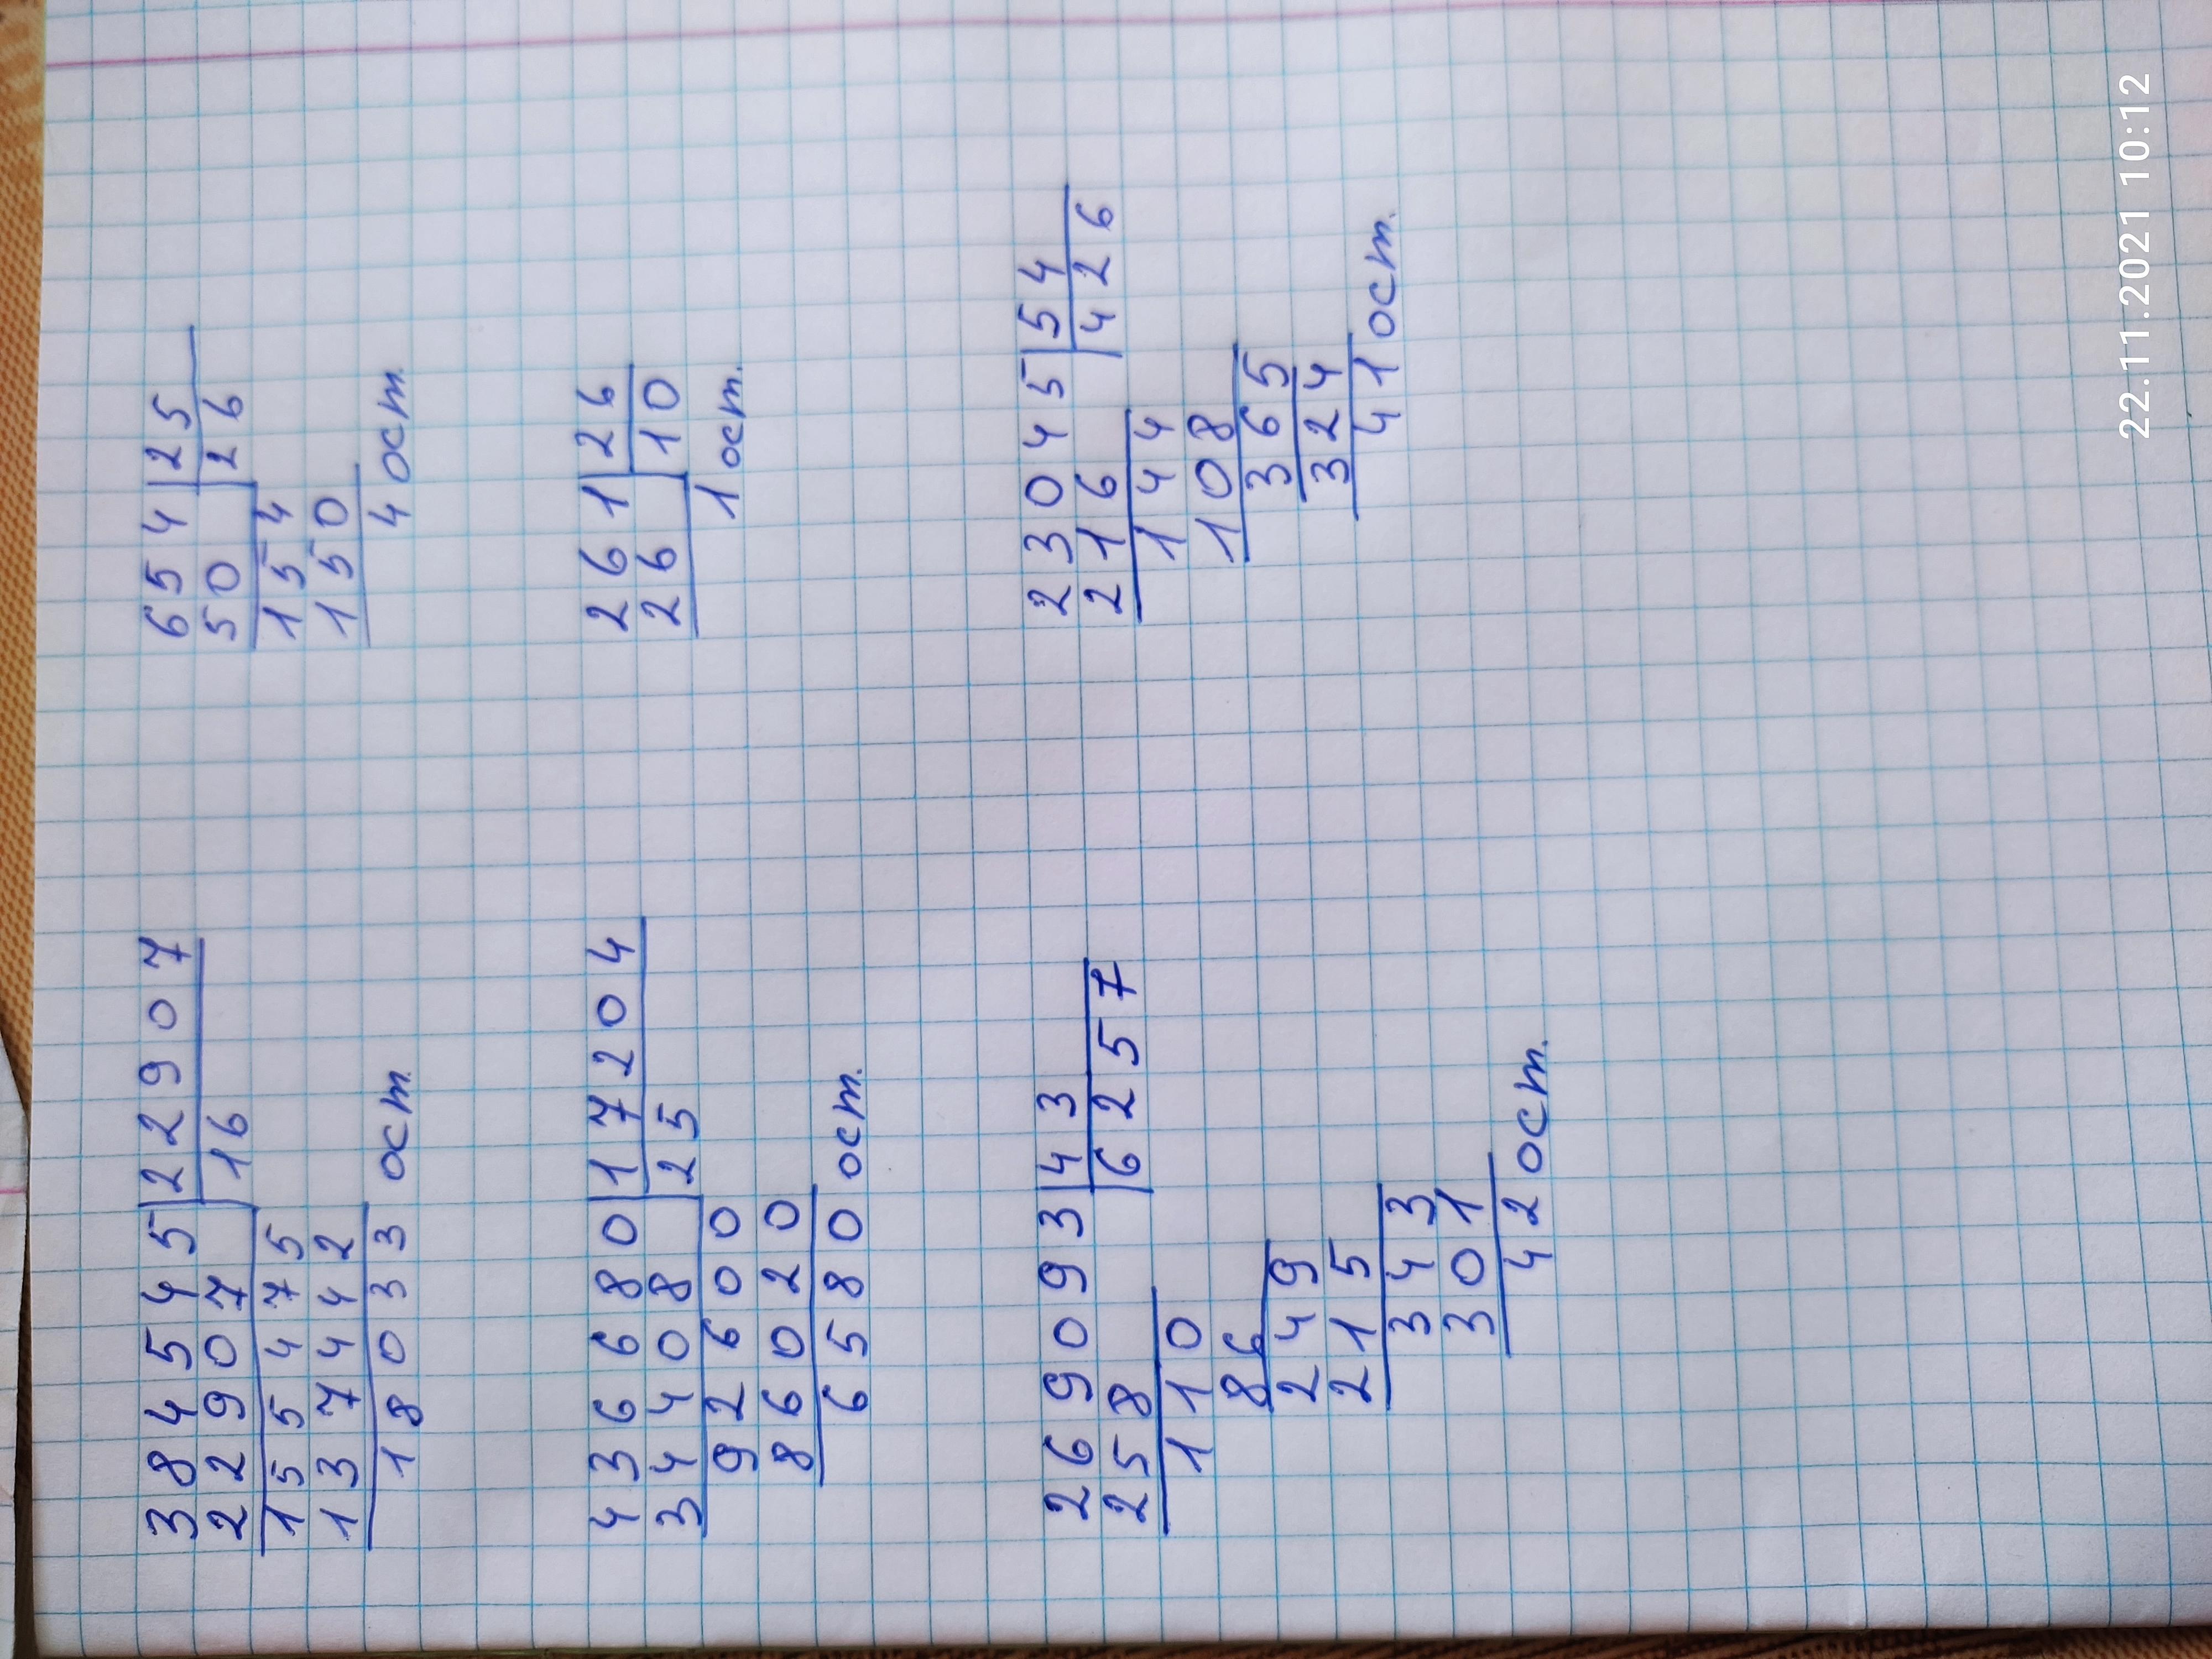 384545|22907
22907 16
155475
137442
18033 ост.
654|25
50 26
154
150
4 ост.
436680|17204
34408 25
92600
86020
6580 ост.
261|26
26 10
1 ост.
269093|43
258 6257
110
86
249
215
343
301
42 ост.
23045|54
216 426
144
108
365
324
41 ост.
22.11.2021 10:12